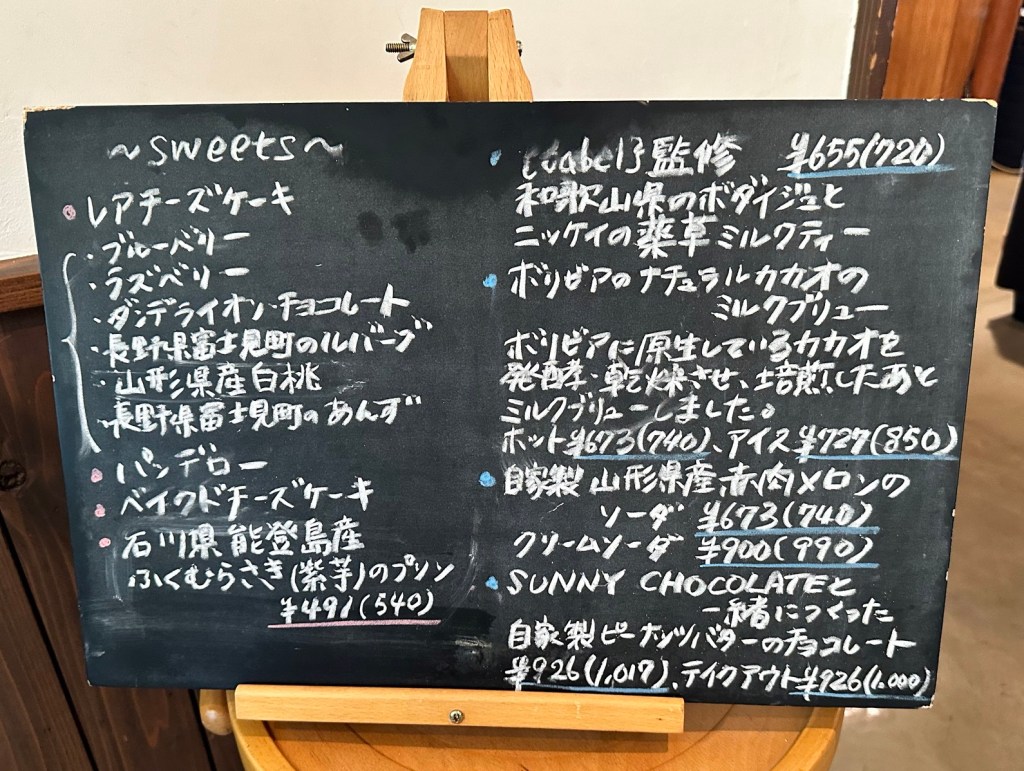 ~sweets~
・レアチーズケーキ
・ブルーベリー
・ラズベリー
・ダンデライオン・チョコレート
・長野県富士見町のルバーブ
・山形県産白桃
・長野県富士見町のあんず
・パンデロー
・ベイクドチーズケーキ
・石川県能登島産
ふくむらさき(紫芋)のプリン
¥491(540)
・{tabel}監修 ¥655(720)
和歌山県のボダイジュと
ニッケイの薬草ミルクティー
・ボリビアのナチュラルカカオの
ミルクブリュー
ボリビアに原生しているカカオを
発酵・乾燥させ、焙煎したあと
ミルクブリューしました。
ホット¥673(740)、アイス¥727(850)
・自家製 山形県産赤肉メロンの
ソーダ ¥673(740)
クリームソーダ ¥900(990)
・SUNNY CHOCOLATEと
一緒につくった
自家製ピーナッツバターのチョコレート
¥926(1,017)、テイクアウト¥926(1,000)